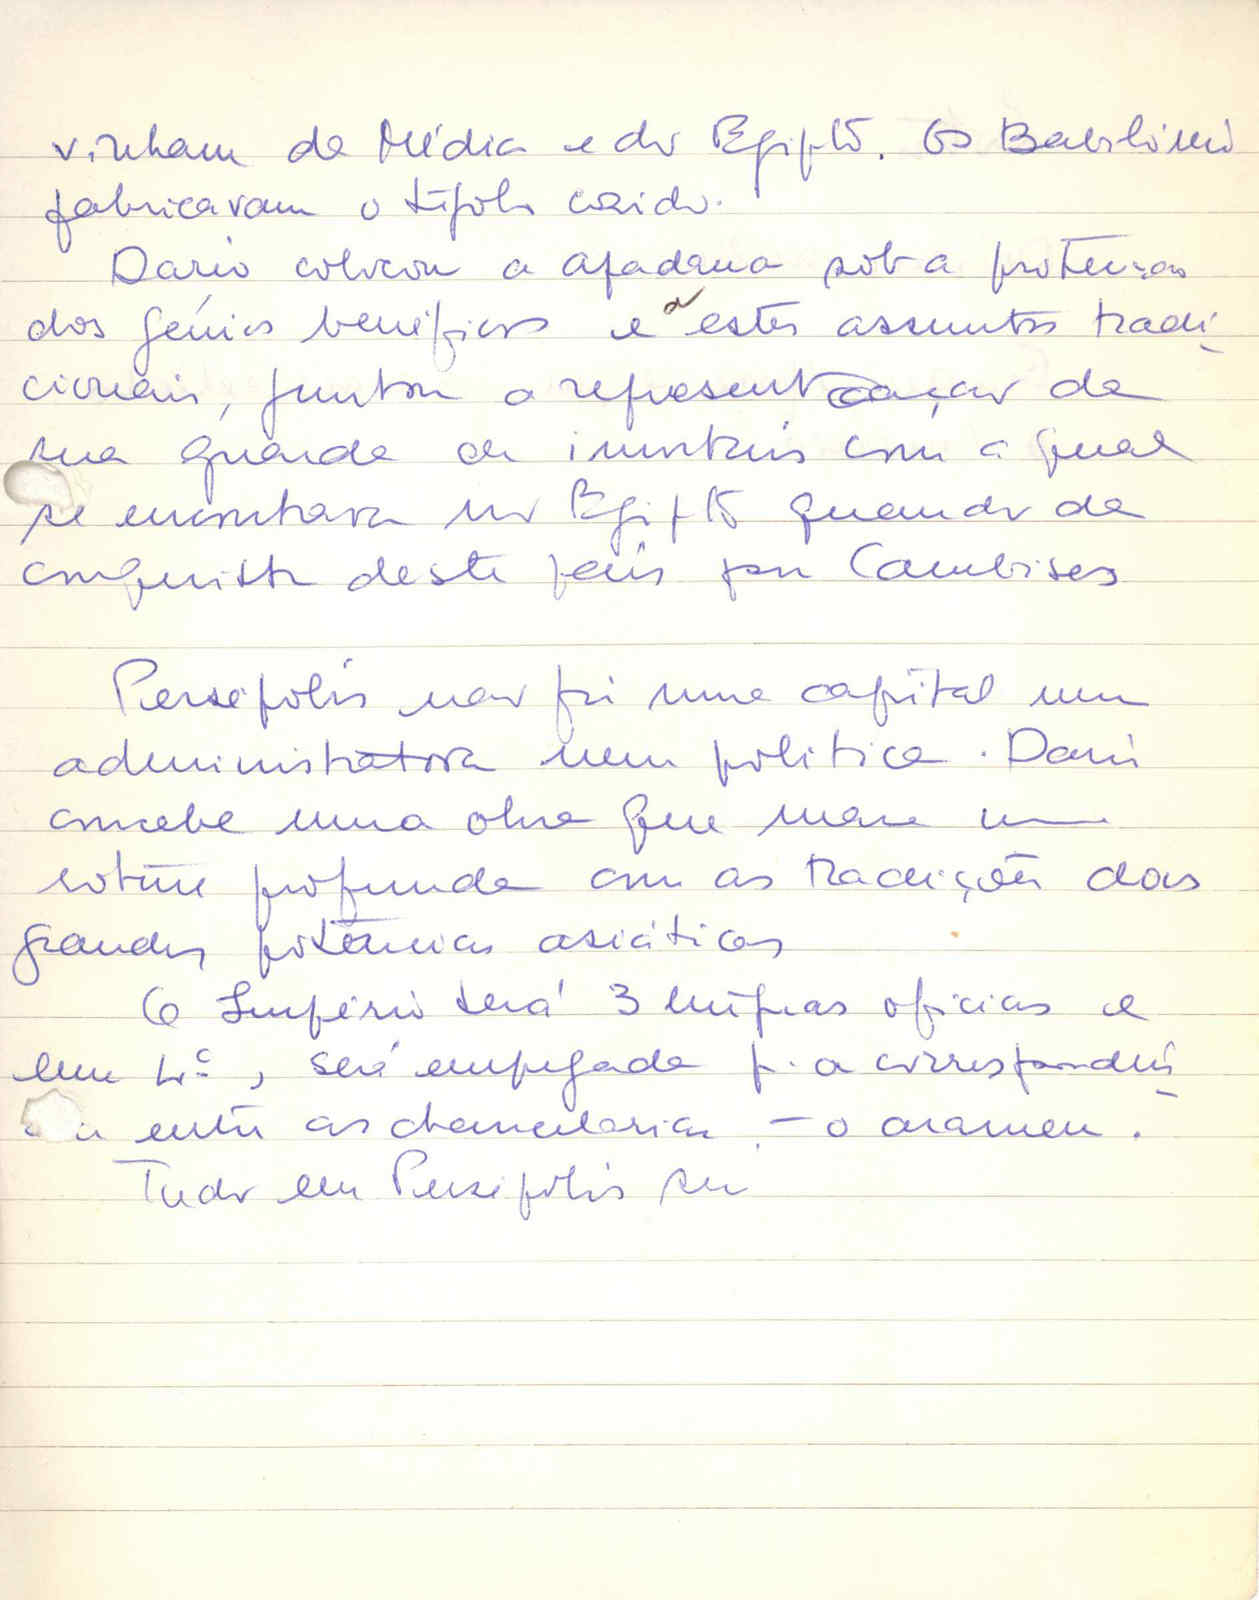 vinham da Média e do Egipto. Os Babilónios
fabricavam o tijolo cozido.
Dario colocou a apadana sob a protecção
dos génios benéficos e a estes assuntos tradi-
cionais, juntou a representação da
sua guarda de imortais com a qual
se encontrava no Egipto quando da
conquista deste país por Cambises
Persépolis não foi uma capital nem
administrativa nem politica. Dario
concebe uma obra que marca uma
profunda com as tradições das
grandes potências asiáticas
O Império terá 3 línguas oficiais e
em 4º, será empregada p. a correspondên-
cia entre as chancelarias - o arameu.
Tudo em Persépolis